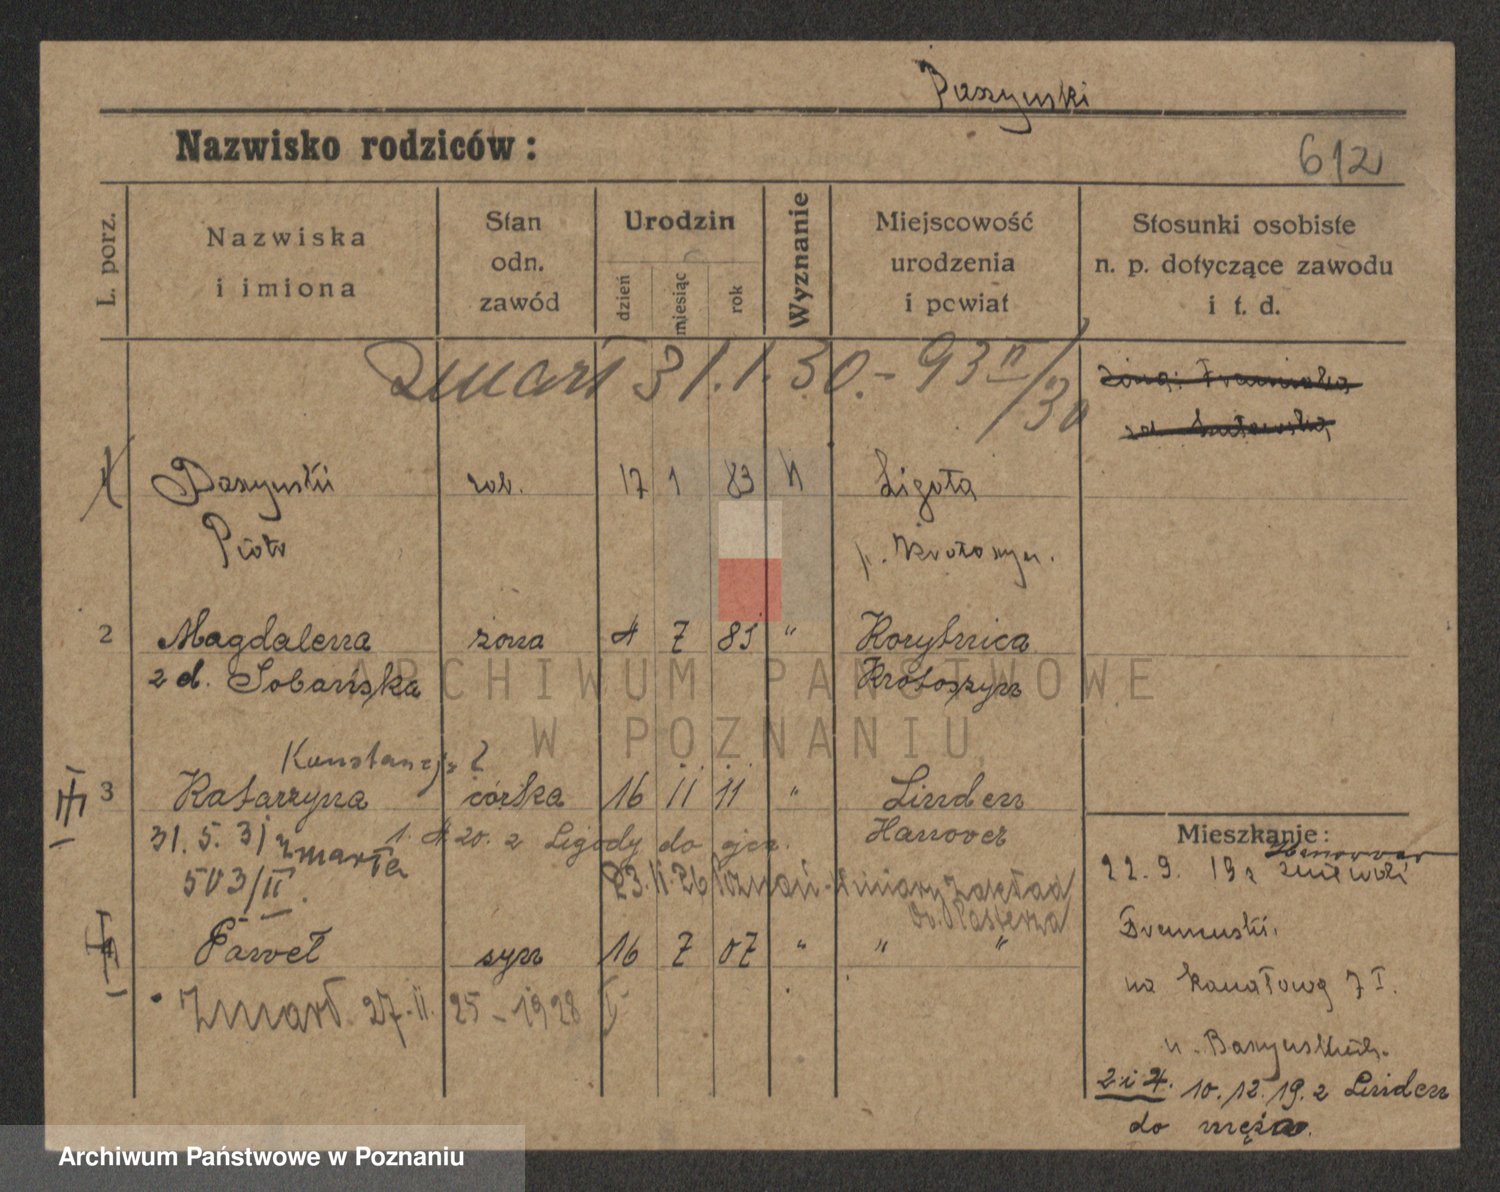 Baszyński
Nazwisko rodziców:
612
L. porz.
Nazwiska
i imiona
Stan
odn.
zawód
Urodzin
dzień
miesiąc
rok
Wyznanie
Miejscowość
urodzenia
i powiat
Stosunki osobiste
n. p. dotyczące zawodu
i t. d.
Zmarł 31.1.30.- 93 II/30
żona: Franciszka
1 Baszyński rob. 17 1 83 k Ligota
Piotr p. Krotoszyn.
2 Magdalena żona 4 7 85 " Korytnica
z d. Sobańska Krotoszyn
Konstancja ?
3 Katarzyna córka 16 11 11 " Linden
31. 5. 31 zmarła 1. 4 20. z Ligody do ojca. Hannover
503/II. 23.11.26 Poznań
4 Paweł syn 16 7 07 " " "
Zmarł 27. 11. 25 - 1928 I
Mieszkanie:
Hannover
22. 9. 19 z
na Kanałową 7 I.
u. Baszyńskich.
2 i 4. 10. 12. 19. z Linden
do męża.
ARCHIWUM PAŃSTWOWE
W POZNANIU
Archiwum Państwowe w Poznaniu